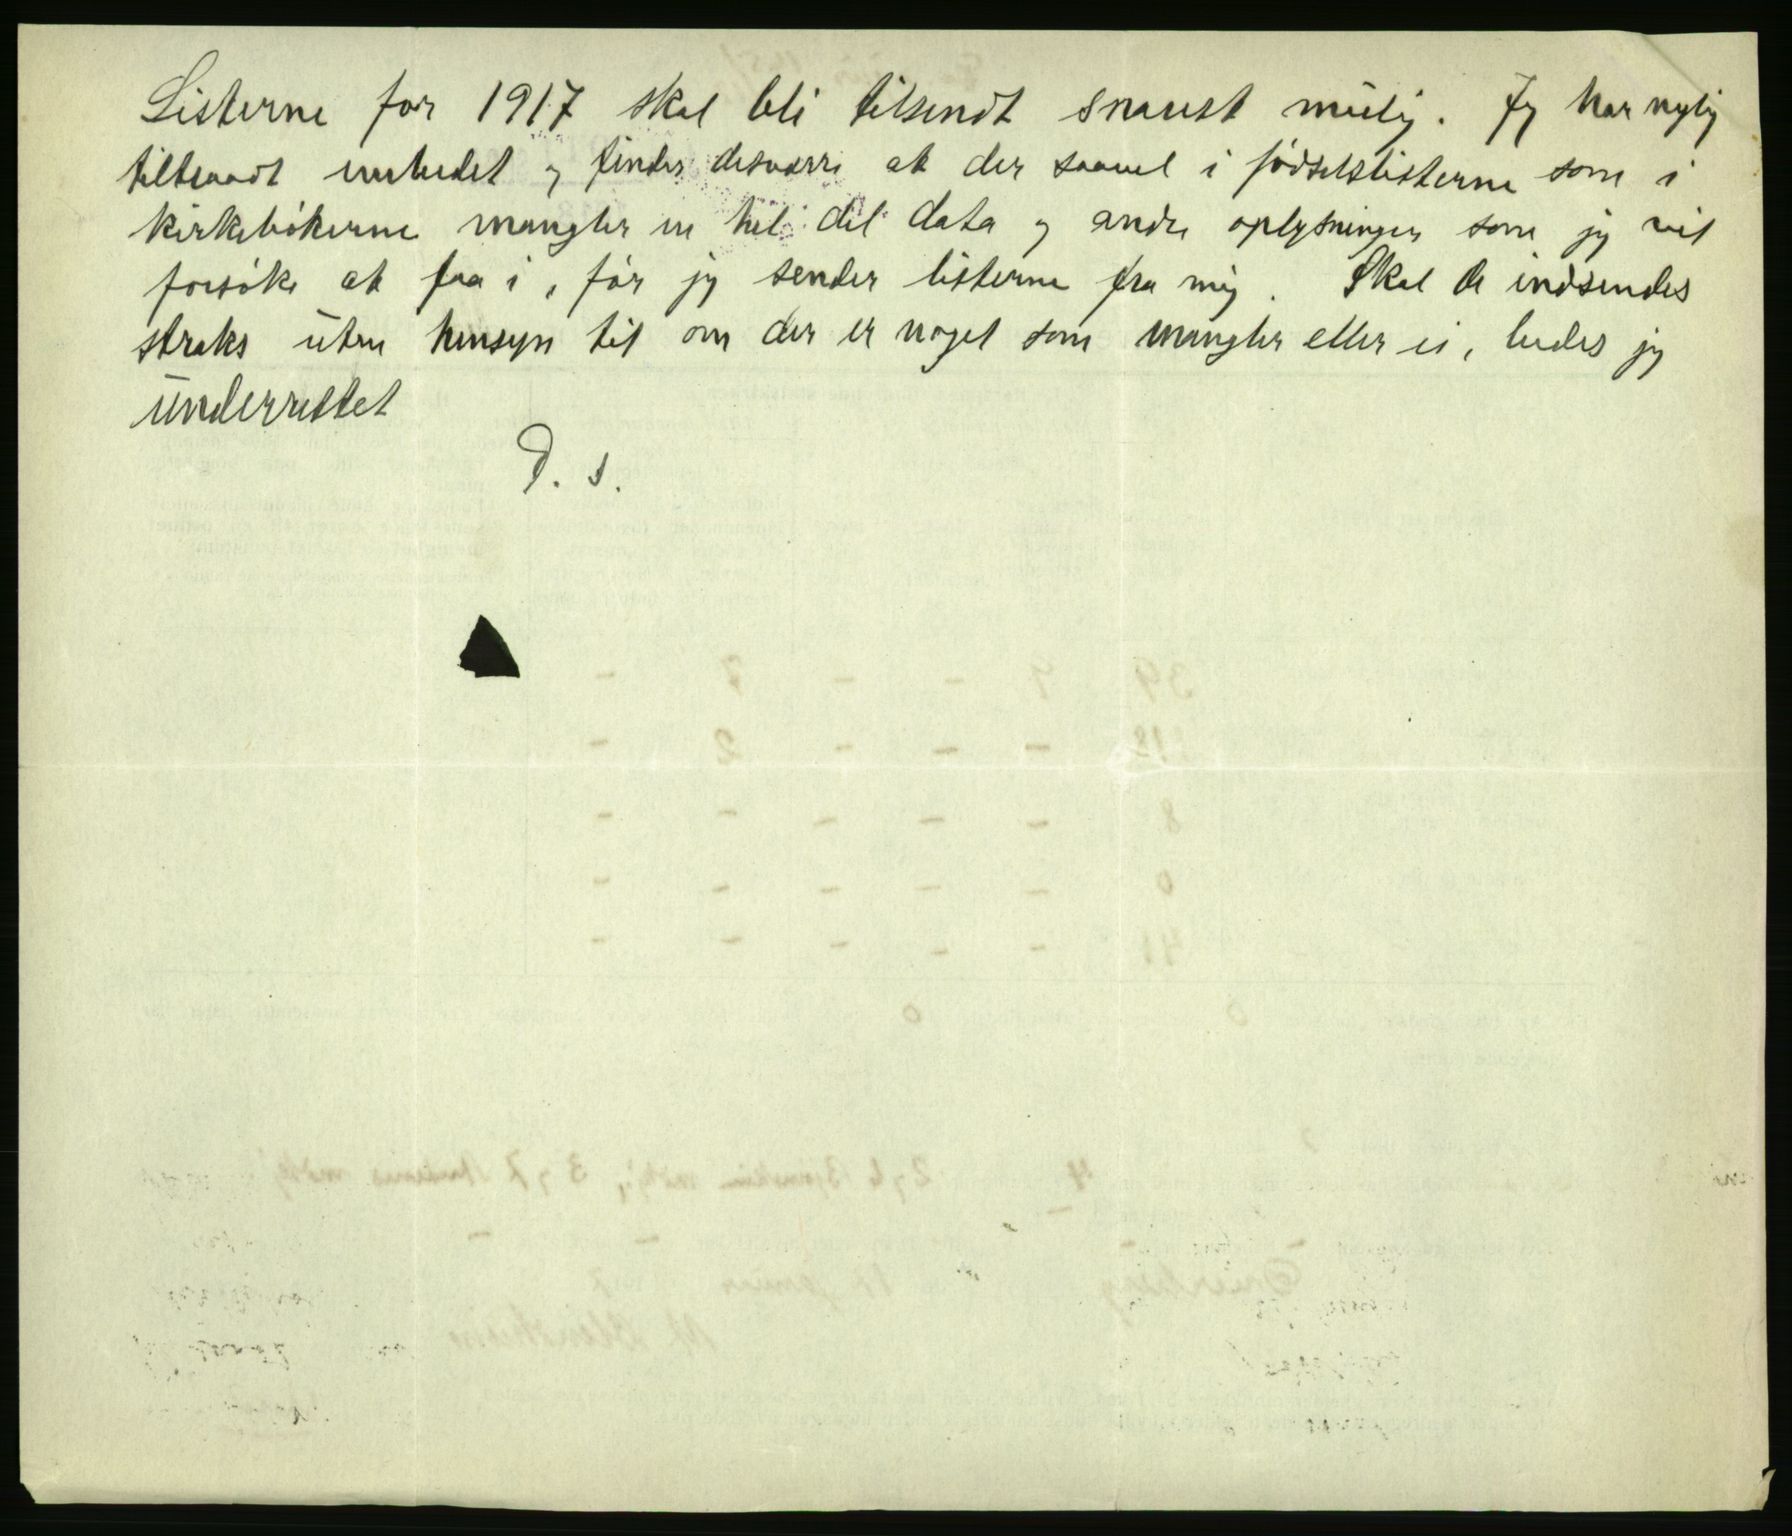 Listerne for 1917 skal bli tilsendt snarest mulig. Jeg har nylig
tiltraadt embedet og finder desværre at der saavel i fødselslisterne som i
kirkebøkerne mangler en hel del data og andre oplysninger som jeg vil
forsøke at faa i, før jeg sender listerne fra mig. Skal de indsendes
straks uten hensyn til om der er noget som mangler eller ei, bedes jeg
underrettet
D. s.